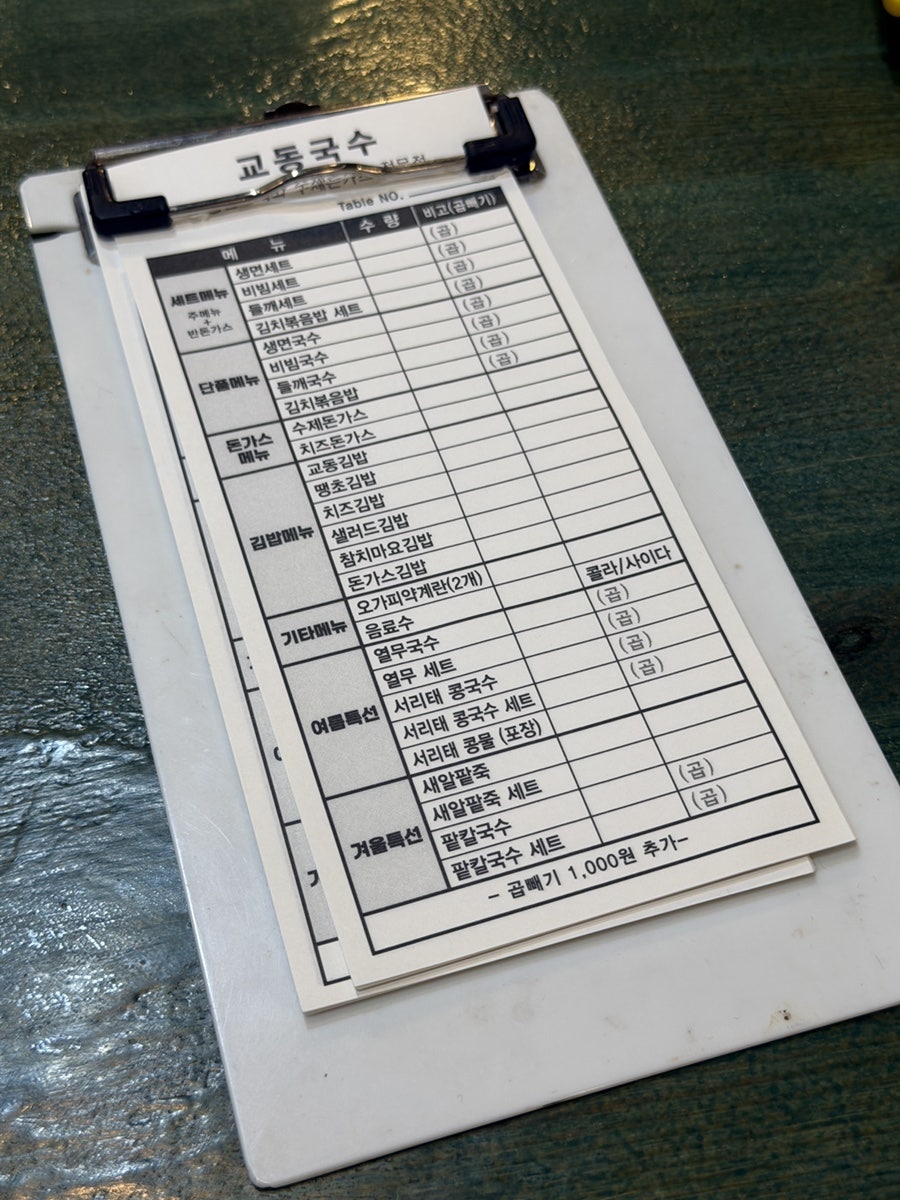 교동국수
수제돈가스 전문점
Table NO.
메 뉴 수 량 비고(곱빼기)
세트메뉴
주메뉴
+
반돈가스
생면세트 (곱)
비빔세트 (곱)
들깨세트 (곱)
김치볶음밥 세트 (곱)
단품메뉴
생면국수 (곱)
비빔국수 (곱)
들깨국수 (곱)
김치볶음밥
돈가스
메뉴
수제돈가스
치즈돈가스
김밥메뉴
교동김밥
땡초김밥
치즈김밥
샐러드김밥
참치마요김밥
돈가스김밥
기타메뉴
오가피약계란(2개)
음료수 콜라/사이다
여름특선
열무국수 (곱)
열무 세트 (곱)
서리태 콩국수 (곱)
서리태 콩국수 세트 (곱)
서리태 콩물 (포장)
겨울특선
새알팥죽
새알팥죽 세트
팥칼국수 (곱)
팥칼국수 세트 (곱)
- 곱빼기 1,000원 추가-